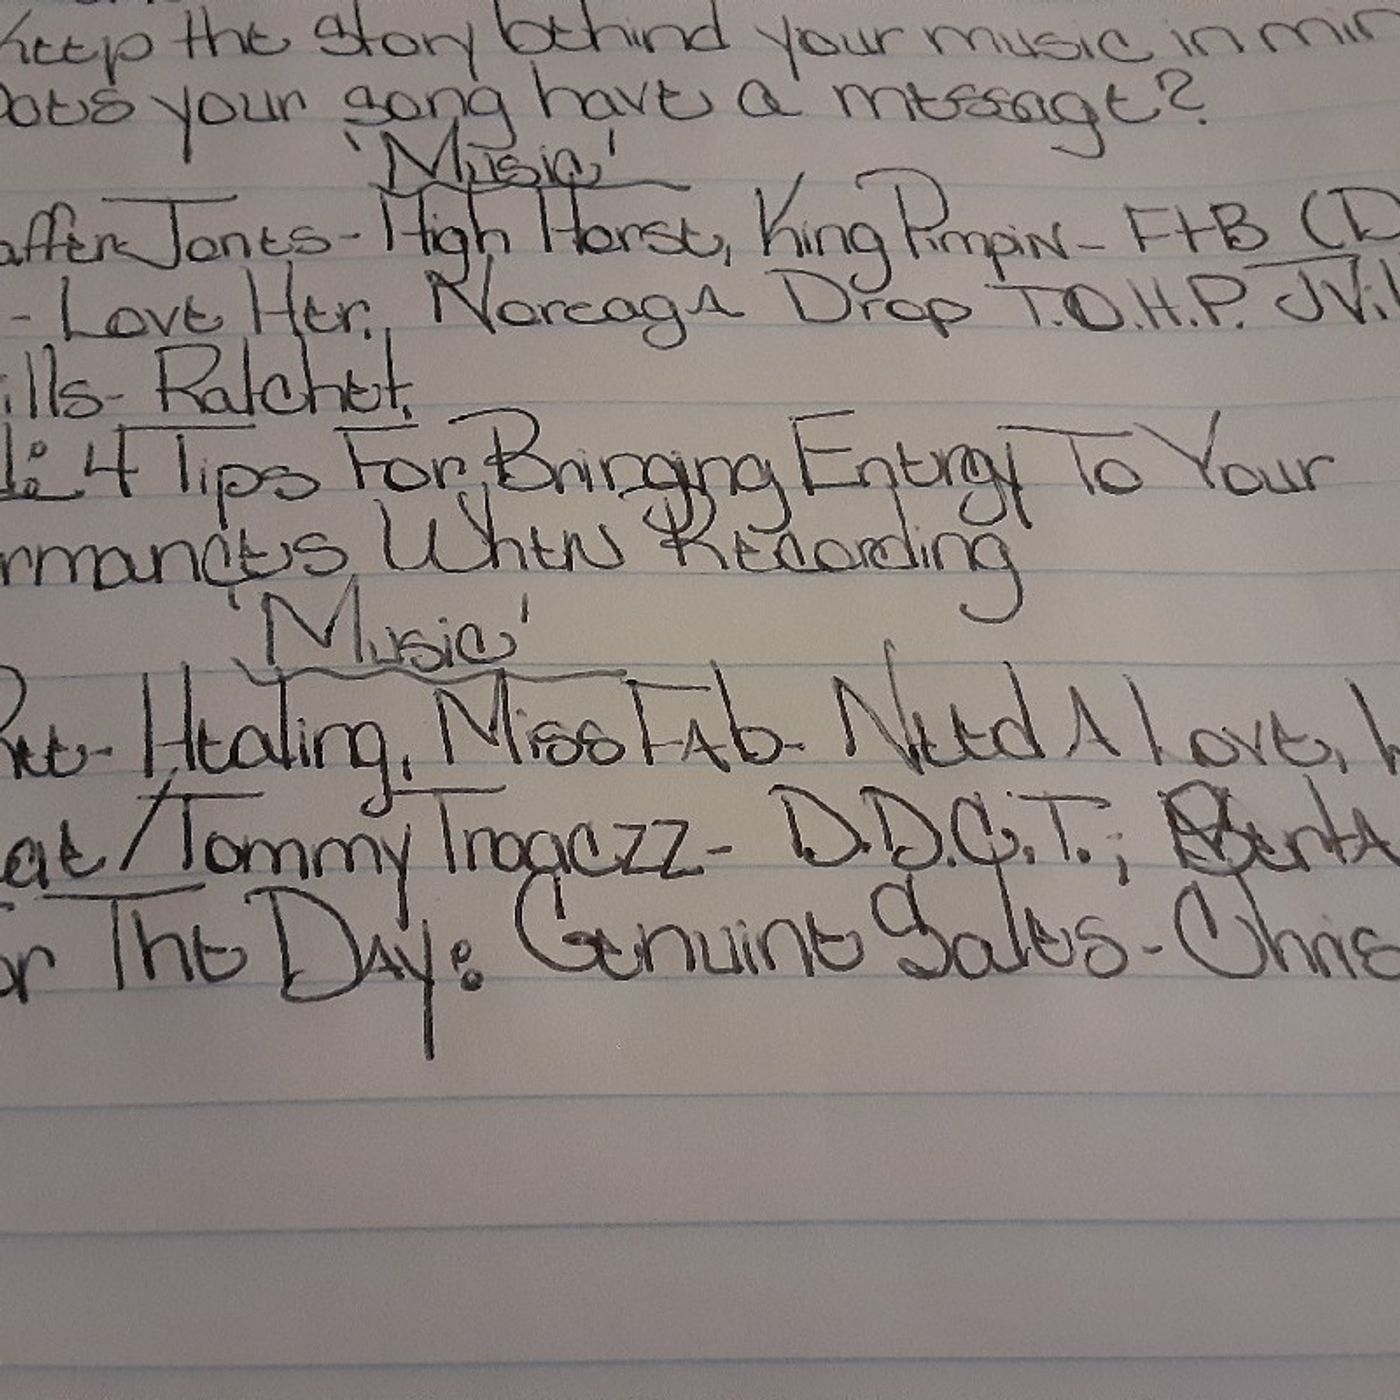 Keep the story behind your music in min
Does your song have a message?
'Music'
affer Jones - High Horse, King Pimpin - FtB (D
- Love Her, Noreaga Drop T.O.H.P. JVil
ills - Ratchet.
4 Tips For Bringing Energy To Your
rmances When Recording
'Music'
- Healing, Miss Fab - Need A Love,
eat/Tommy Tragczz - D.D.G.T.;
or The Day: Genuine Sales - Chris